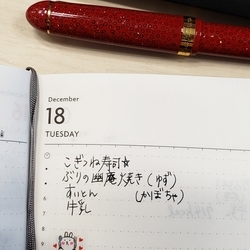 December
18
TUESDAY
こぎつね寿司☆
ぶりの幽庵焼き(ゆず)
すいとん (かぼちゃ)
牛乳
6
7
8
9